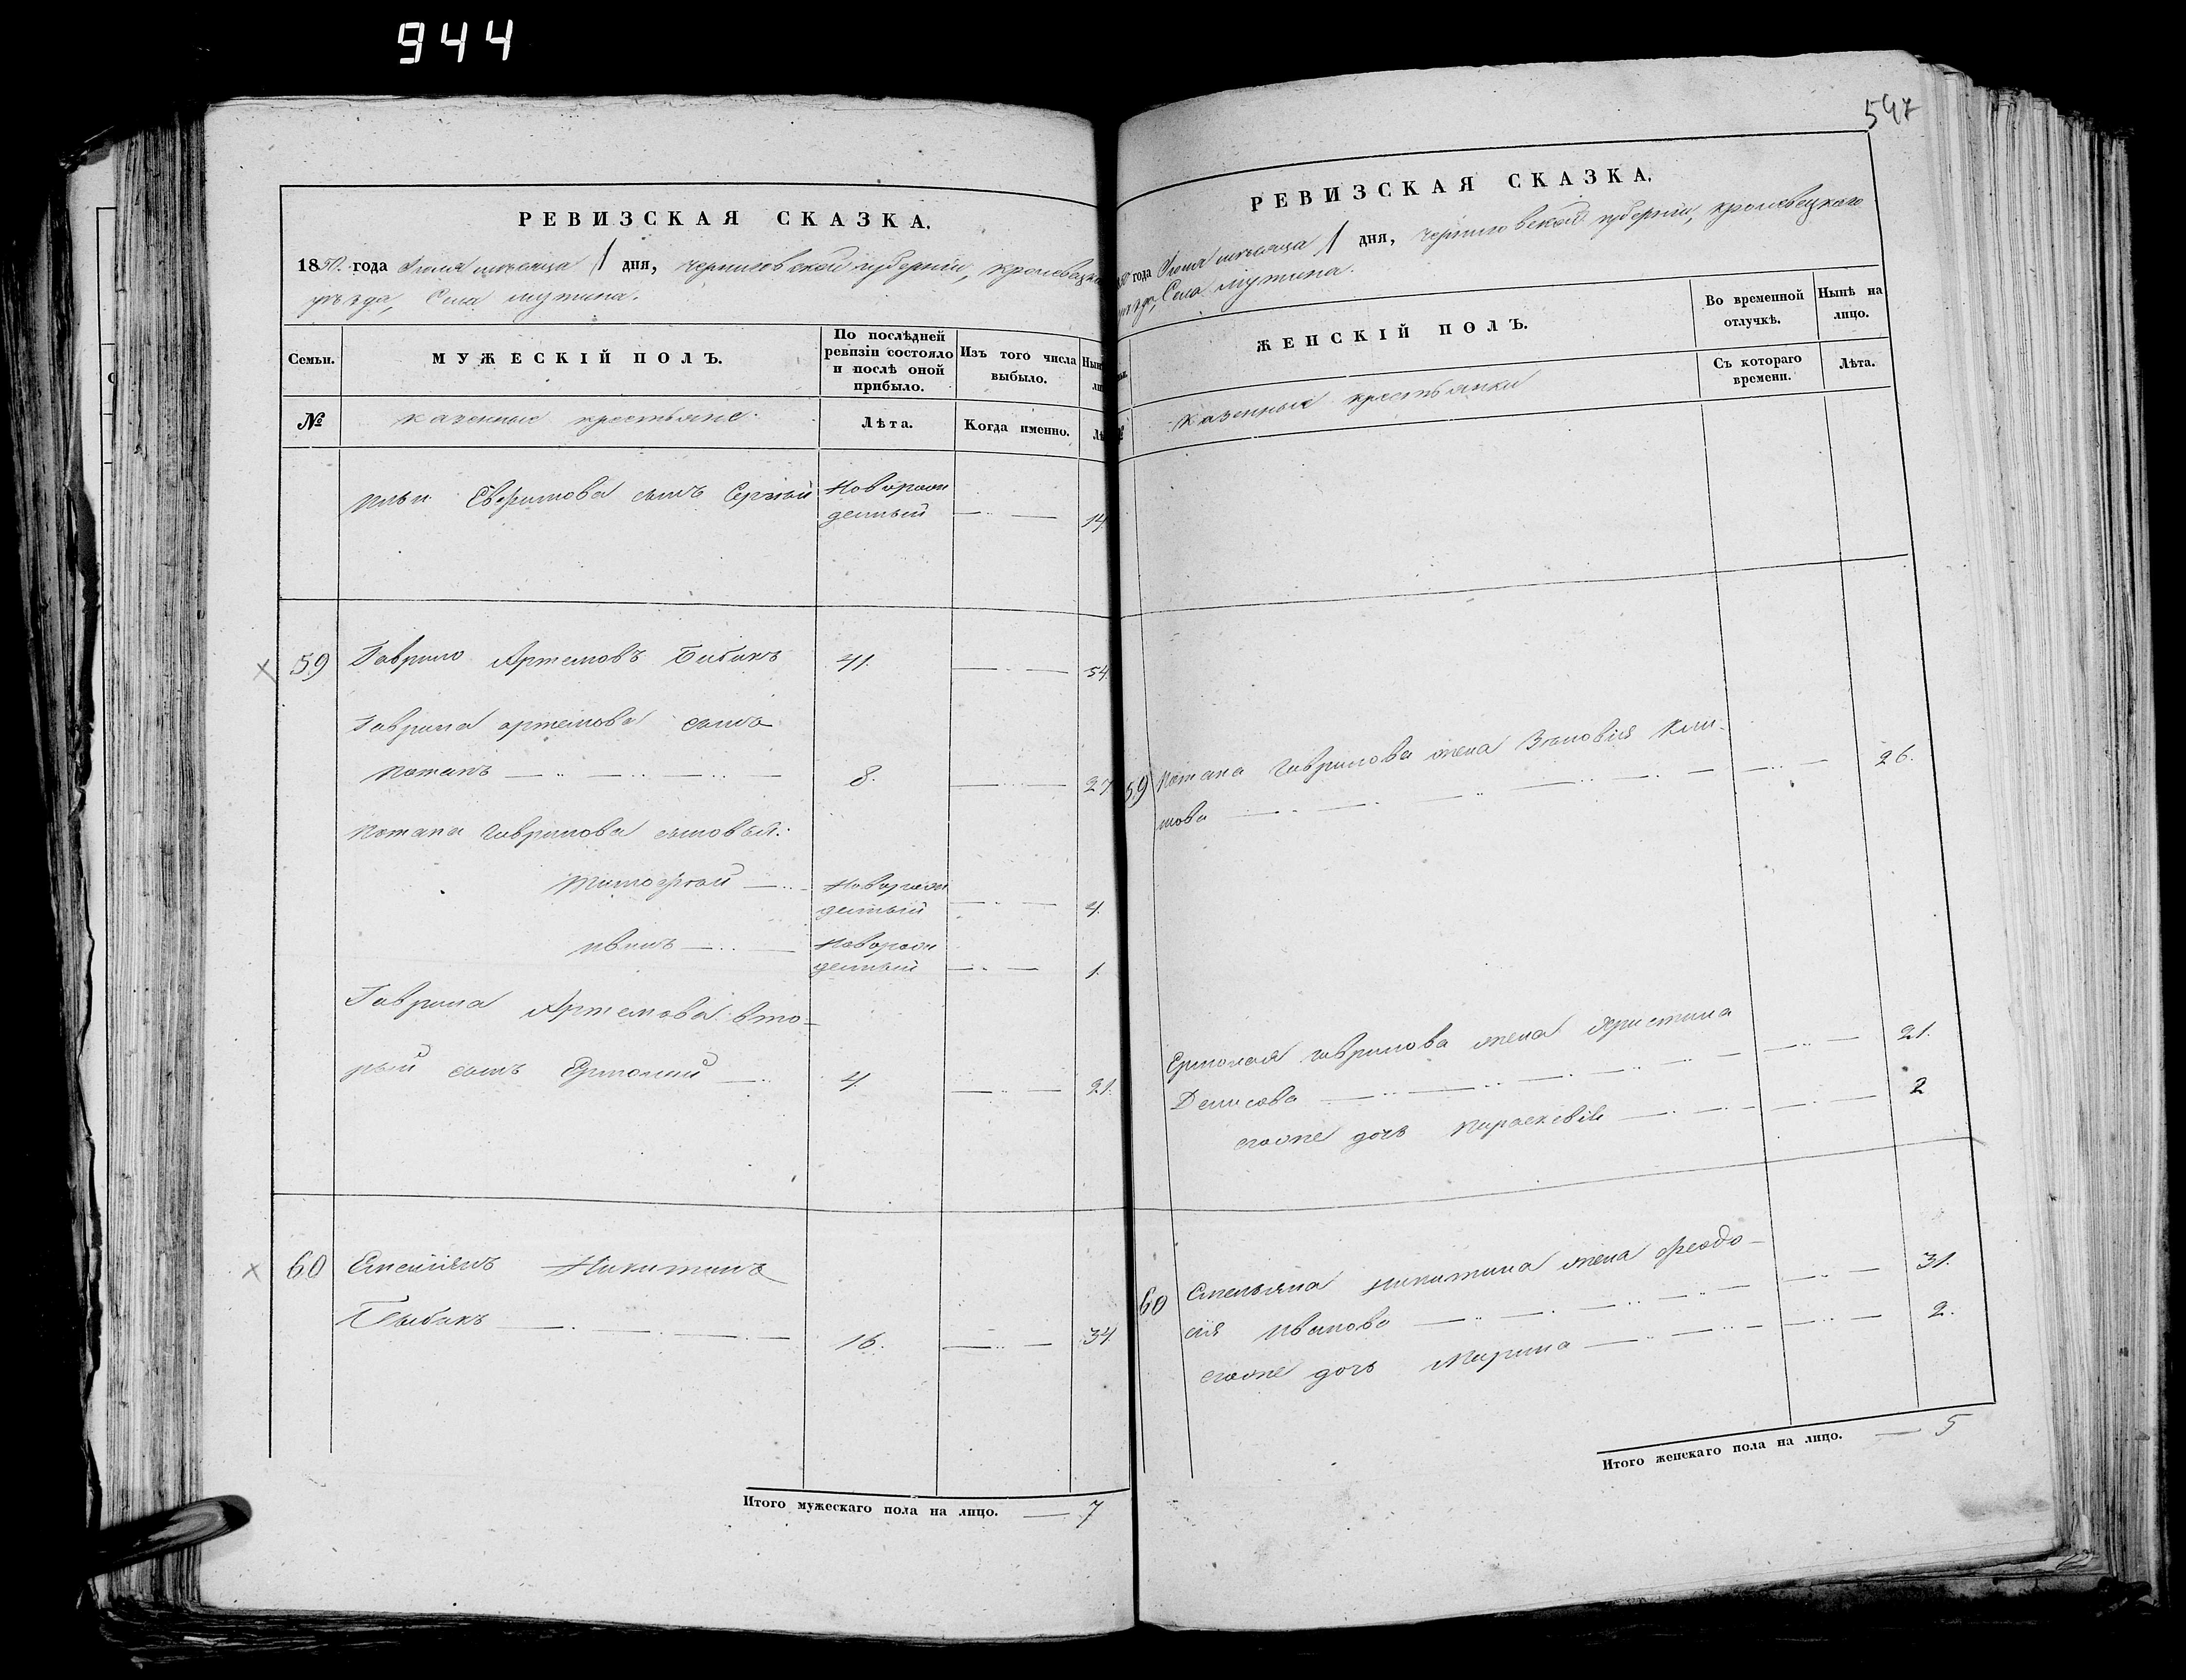 944
547
РЕВИЗСКАЯ СКАЗКА.
1850. года Июля месяца 1 дня, черниговской губернии, кролевецкаго
уѣзда, Села мутина.
Семьи.
МУЖЕСКІЙ ПОЛЪ.
По послѣдней
ревизіи состояло
и послѣ оной
прибыло.
Изъ того числа
выбыло.
№
казенные крестьяне.
Лѣта.
Когда именно.
Ильи Евфимова сынъ Сергѣй Новорож
денный 14
59 Гаврило Артемовъ Бибикъ 41. 54.
Гаврила артемова сынъ
Потапъ 8. 27
Потапа Гаврилова сыновья:
Тимофѣй Новорож
денный 4.
Иванъ Новорож
денный 1.
Гаврила Артемова вто-
рый сынъ Ермолай 4 21.
60 Емельянъ Никитинъ
Бибикъ 16. 34
Итого мужескаго пола на лицо. 7
РЕВИЗСКАЯ СКАЗКА.
1850 года Июля месяца 1 дня, черниговской губерніи, кролевецкаго
уѣзда, Села мутина.
ЖЕНСКІЙ ПОЛЪ.
Во временной
отлучкѣ.
Нынѣ на
лицо.
Съ котораго
времени.
Лѣта.
№
Казенные крестьянки
59 Потапа Гаврилова жена Зновія Кли-
мова 26.
Ермолая гаврилова жена Христина
Денисова 21.
егоже дочь Параскевія 2
60 Емельяна никитина жена Феодо-
сія Иванова 31.
егоже дочь Марина 2.
Итого женскаго пола на лицо. 5